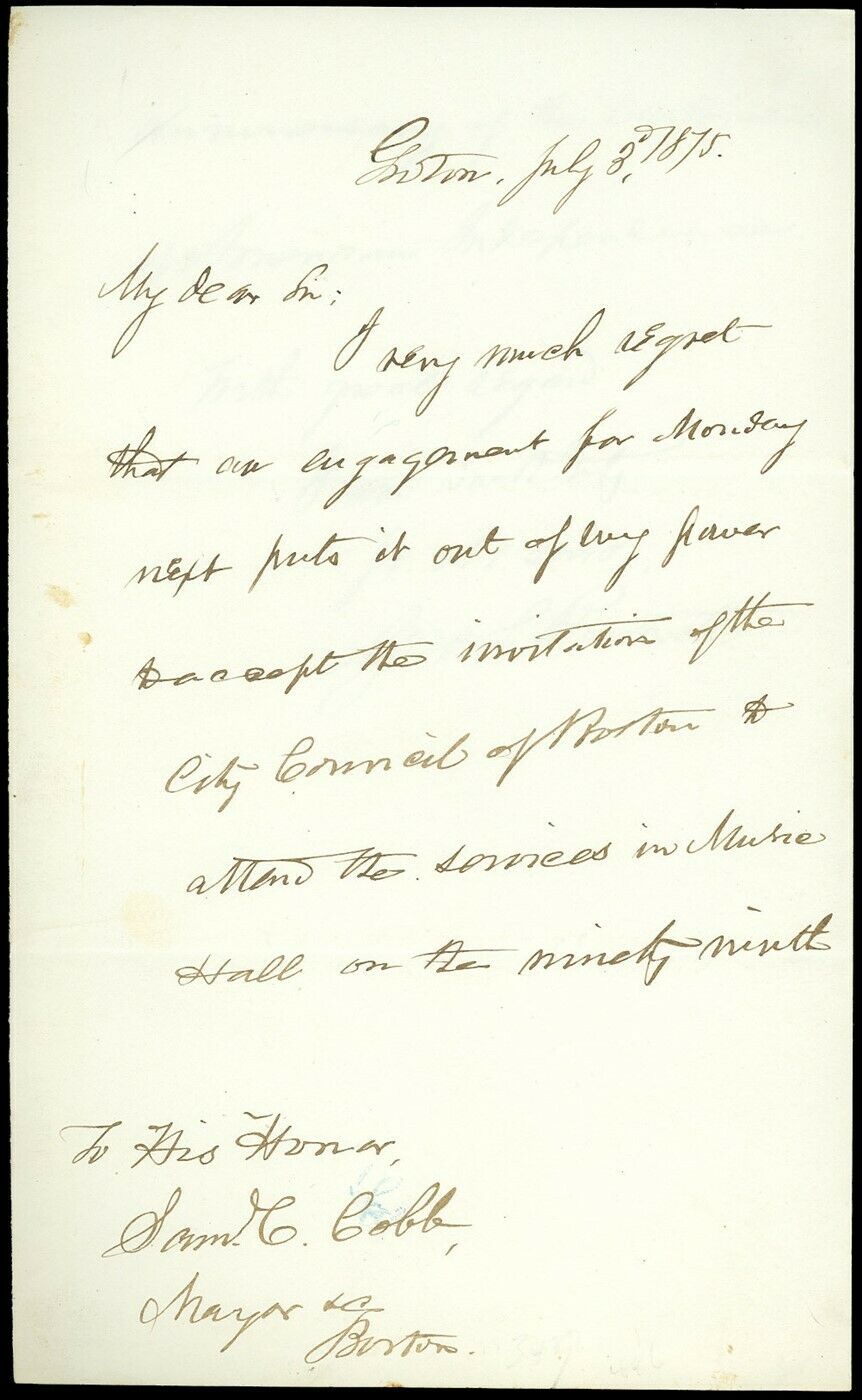 Groton, July 3d, 1875.
My dear Sir:
I very much regret
that an engagement for Monday
next puts it out of my power
to accept the invitation of the
City Council of Boston to
attend the services in Music
Hall on the ninety ninth
To His Honor,
Saml. C. Cobb,
Mayor &c
Boston.